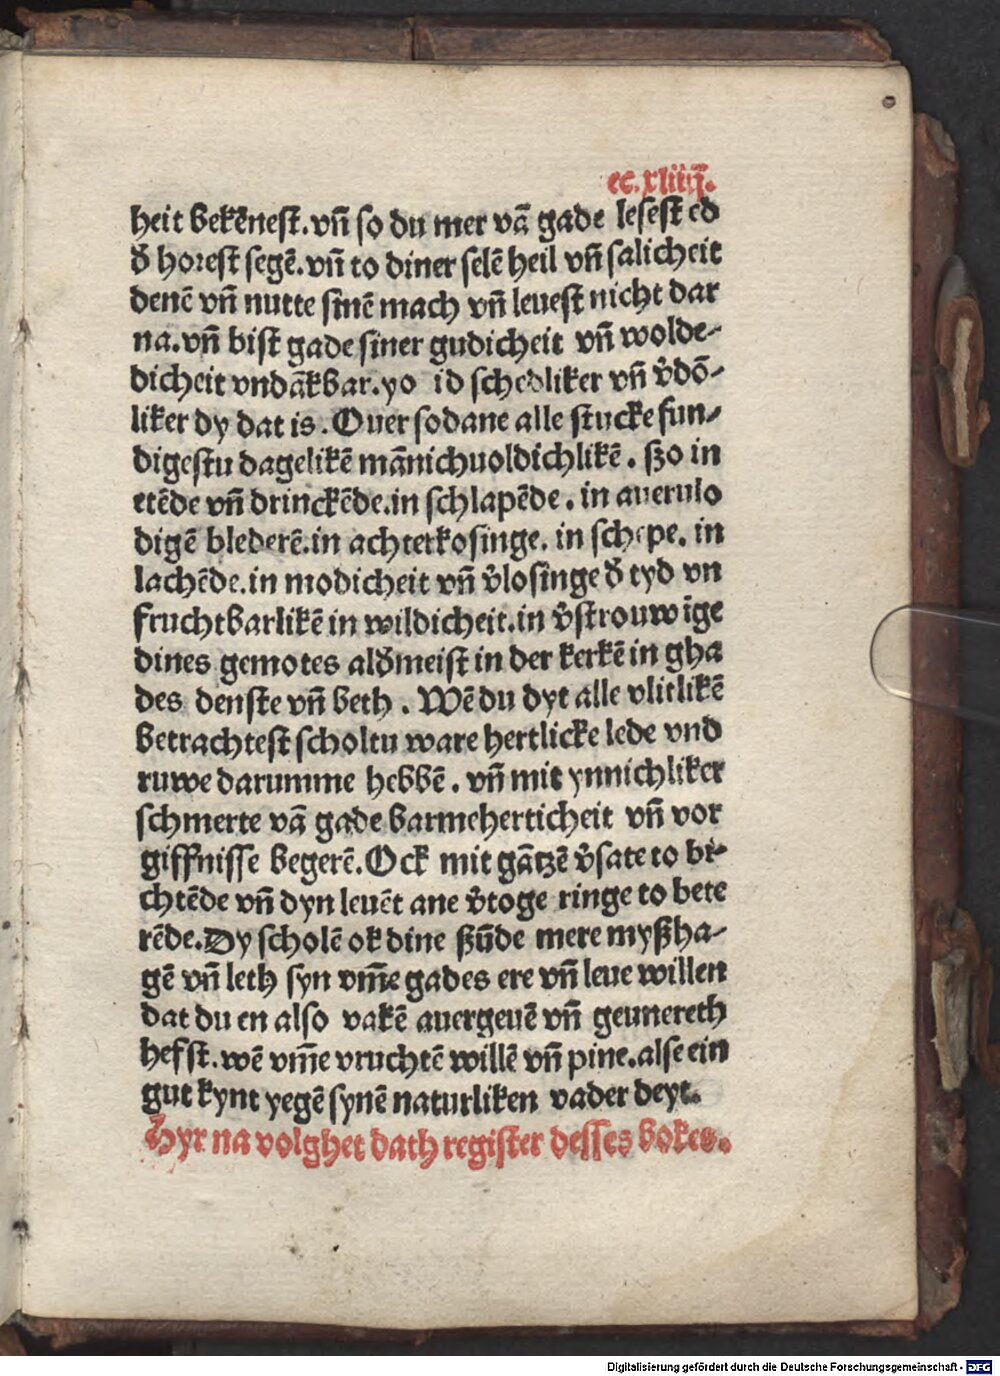 cc.xliiij.
heit bekēnest.vñ so du mer vā gade lesest ed
đ horest segē.vñ to diner selē heil vñ salicheit
denē vñ nutte sinē mach vñ leuest nicht dar
na.vñ bist gade siner gudicheit vñ wolde-
dicheit vndākbar.yo id schedliker vñ v̄dō-
liker dy dat is.Ouer sodane alle stucke fun-
digestu dagelikē mānichuoldichlikē. szo in
etēde vñ drinckēde.in schlapēde. in auerulo
digē blederē.in achterkosinge. in schepe. in
lachēde.in modicheit vñ v̄losinge đ tyd vn
fruchtbarlikē in wildicheit.in v̄strouwīge
dines gemotes alđmeist in der kerkē in gha
des denste vñ beth. Wē du dyt alle vlitlikē
betrachtest scholtu ware hertlicke lede vnd
ruwe darumme hebbē. vñ mit ynnichliker
schmerte vā gade barmeherticheit vñ vor
giffnisse begerē.Ock mit gātzē v̄sate to bi-
chtēde vñ dyn leuēt ane v̄toge ringe to bete
rēde.Dy scholē ok dine szūde mere myszha-
gē vñ leth syn vm̄e gades ere vñ leue willen
dat du en also vakē auergeuē vñ geunereth
hefst.wē vm̄e vruchtē willē vñ pine.alse ein
gut kynt yegē synē naturliken vader deyt.
Hyr na volghet dath register desses bokes.
Digitalisierung gefördert durch die Deutsche Forschungsgemeinschaft - DFG